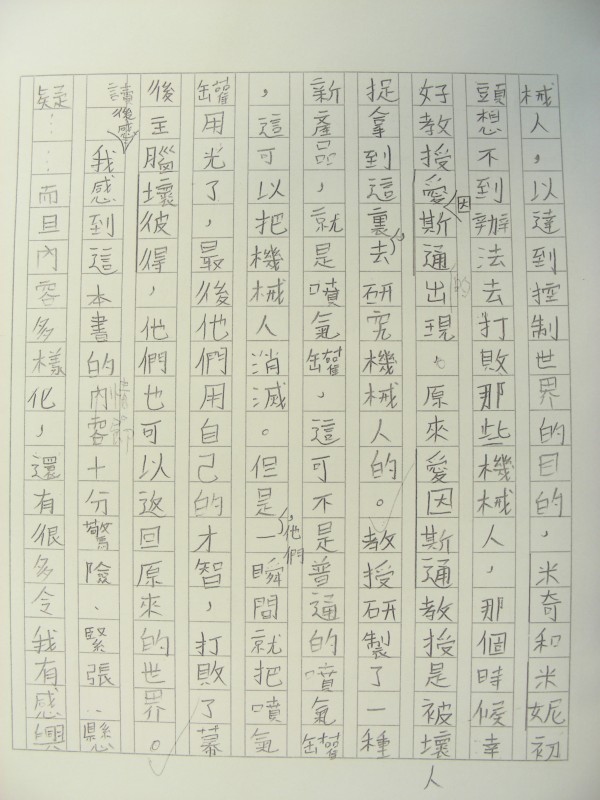 械人，以達到控制世界的目的，米奇和米妮初
頭想不到辦法去打敗那些機械人，那個時候幸
好教授愛因斯通出現。原來愛因斯通教授是被壞人
捉拿到這裏去，研究機械人的。教授研製了一種
新產品，就是噴氣罐，這可不是普通的噴氣罐
，這可以把機械人消滅。但是，他們一瞬間就把噴氣
罐用光了，最後他們用自己的才智，打敗了幕
後主腦壞彼得，他們也可以返回原來的世界。
讀後感我感到這本書的內容十分驚險、緊張、懸
疑……而且內容多樣化，還有很多令我有感興